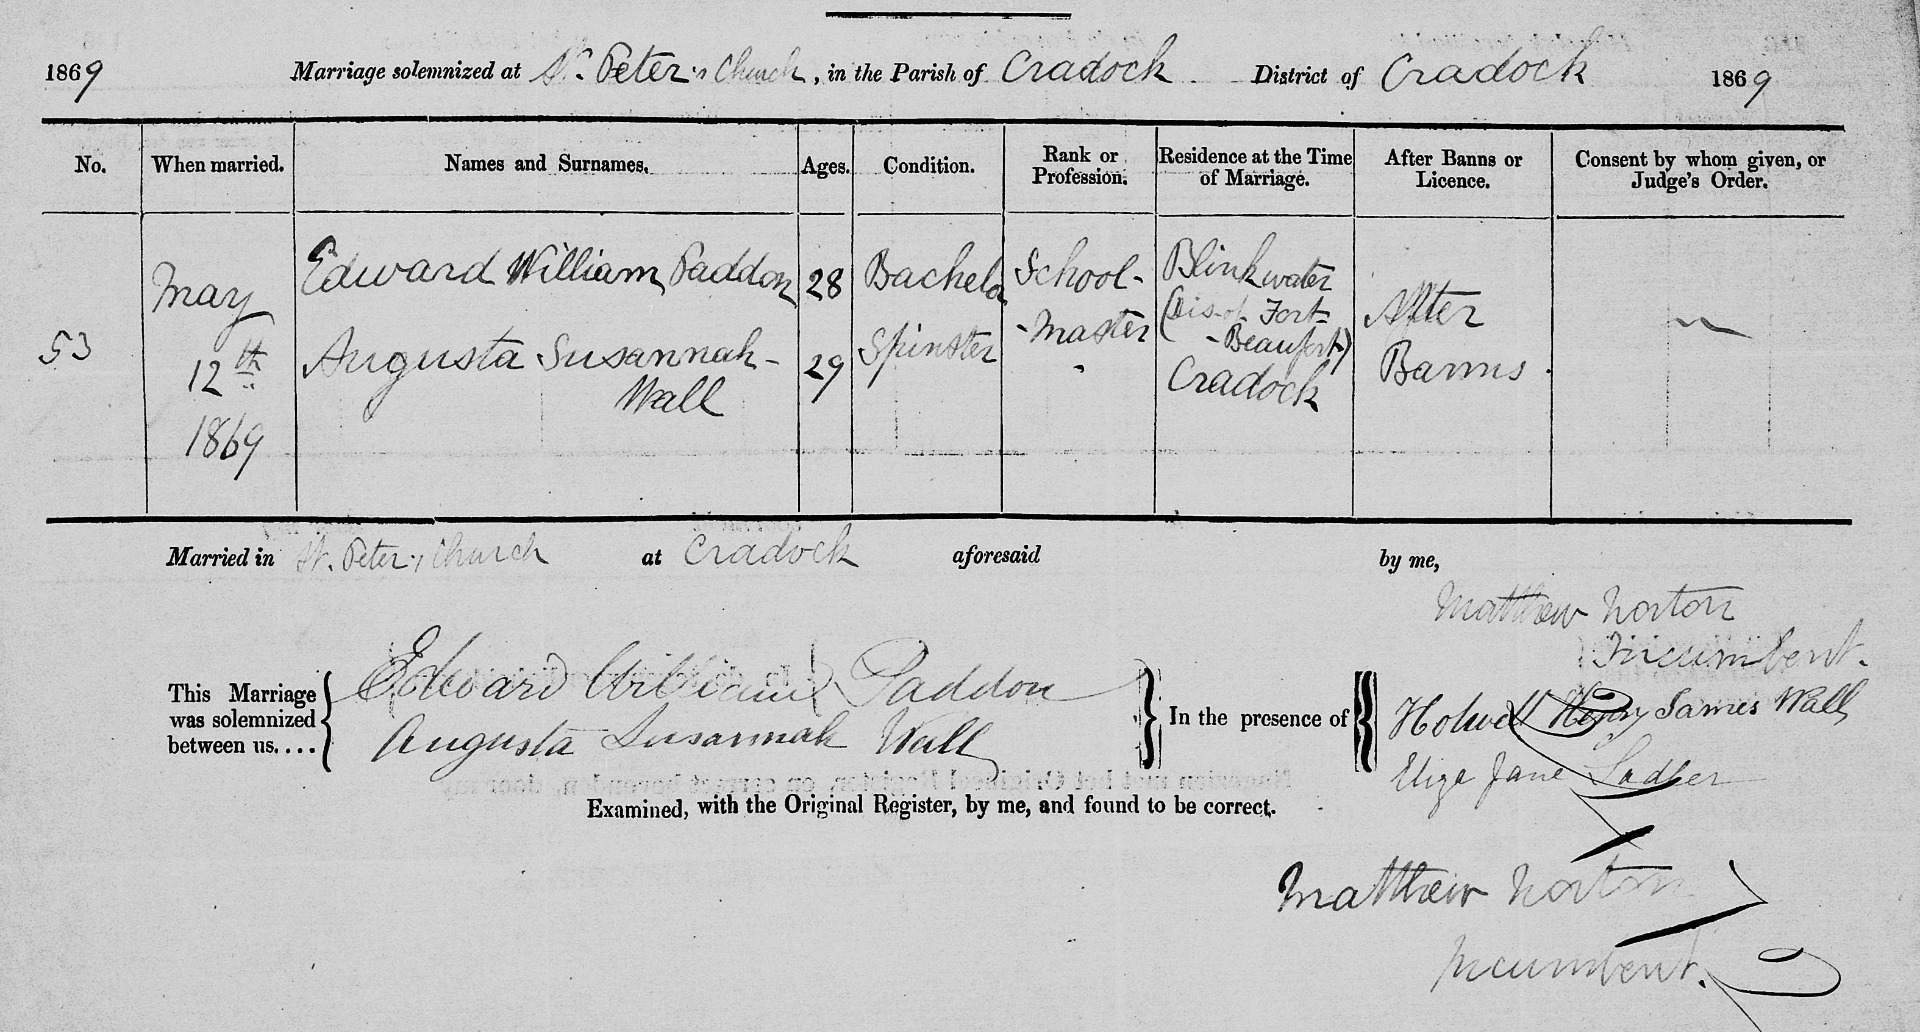 1869 Marriage solemnized at St. Peter's Church, in the Parish of Cradock District of Cradock 1869
No. When married. Names and Surnames. Ages. Condition. Rank or Profession. Residence at the Time of Marriage. After Banns or Licence. Consent by whom given, or Judge's Order.
53
May
12th
1869
Edward William Paddon
Augusta Susannah-
Wall
28
29
Bachelor
Spinster
School-
-master
Blinkwater
(Dis-of Fort-
-Beaufort)
Cradock
After
Banns.
Married in St. Peter's Church at Cradock aforesaid by me,
Matthew Norton
Incumbent.
This Marriage
was solemnized
between us....
Edward William Paddon
Augusta Susannah Wall
In the presence of
Holwell Henry James Wall
Eliza Jane
Examined, with the Original Register, by me, and found to be correct.
Matthew Norton
Incumbent.